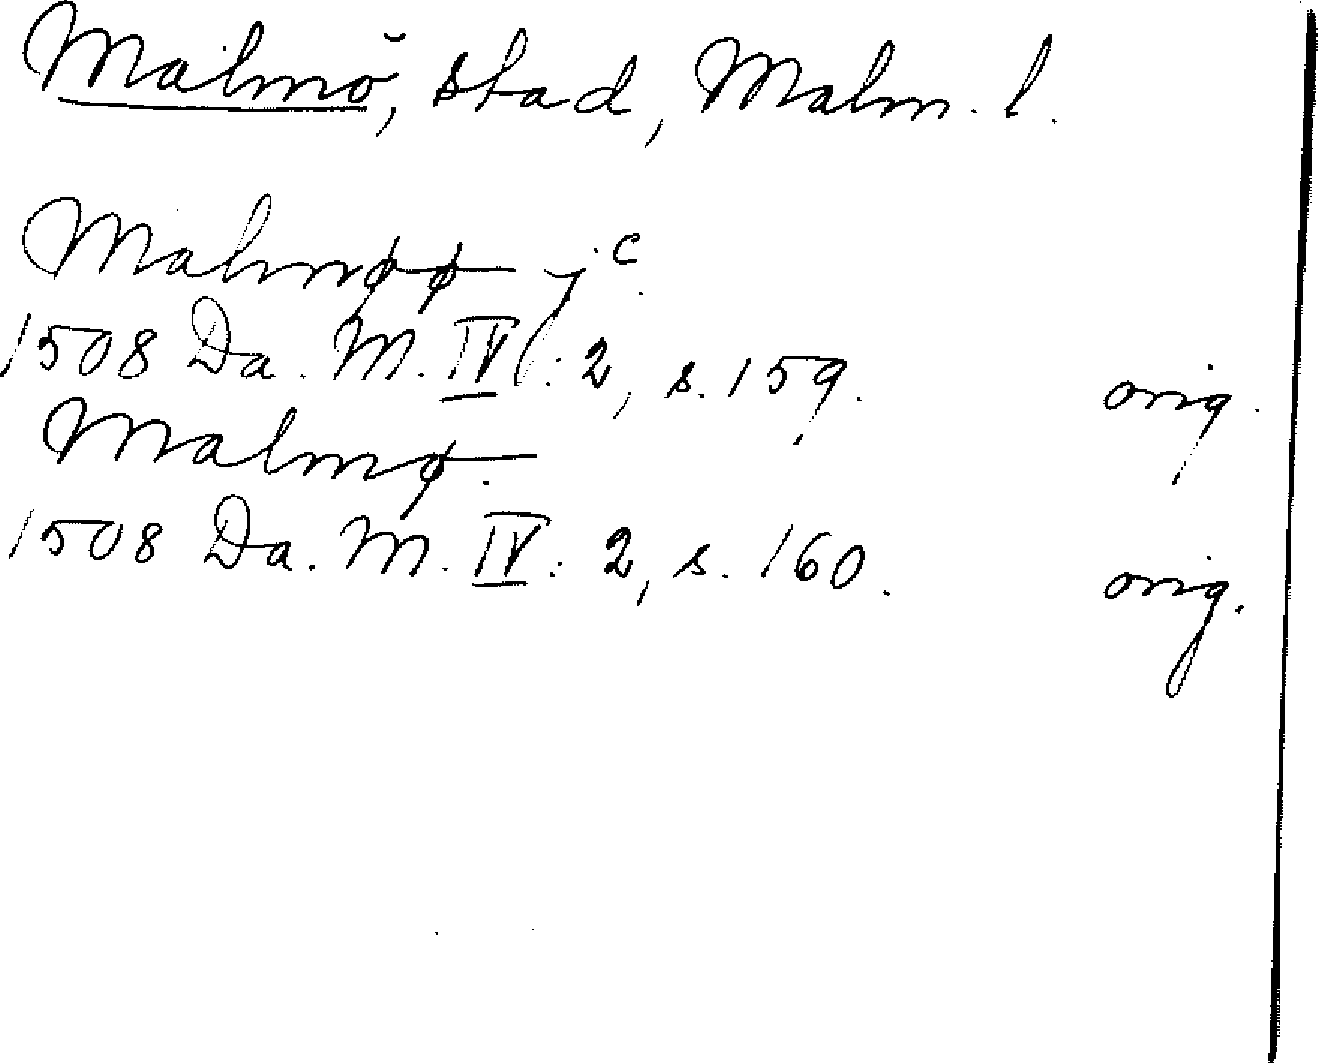 Malmö, stad, Malm. l.
Malmøø jc.
1508 Da. M. IV: 2, s. 159. orig.
Malmø.
1508 Da. M. IV: 2, s. 160. orig.